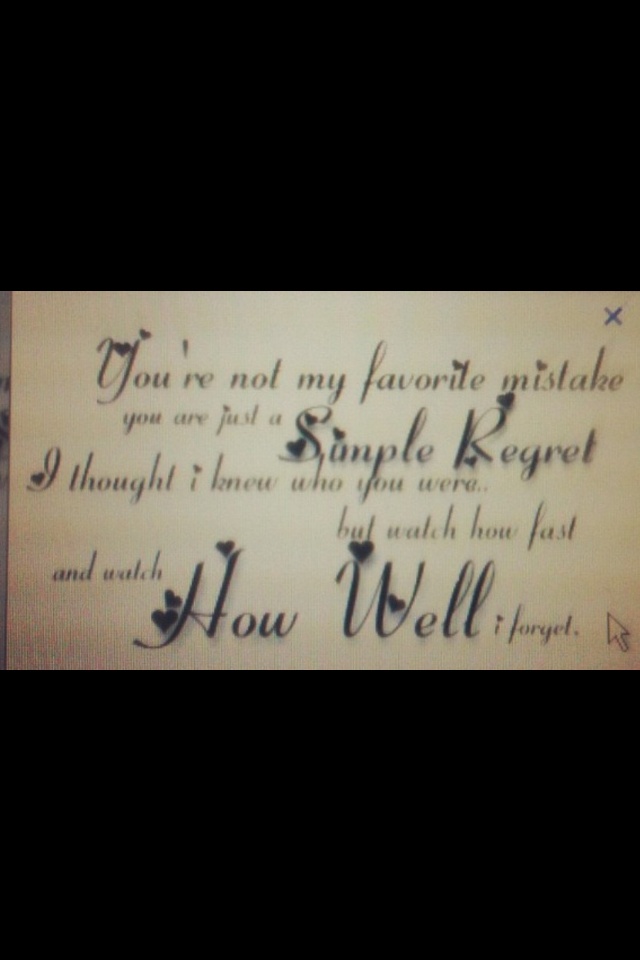 You're not my favorite mistake
you are just a Simple Regret
I thought i knew who you were..
but watch how fast
and watch How Well i forget.